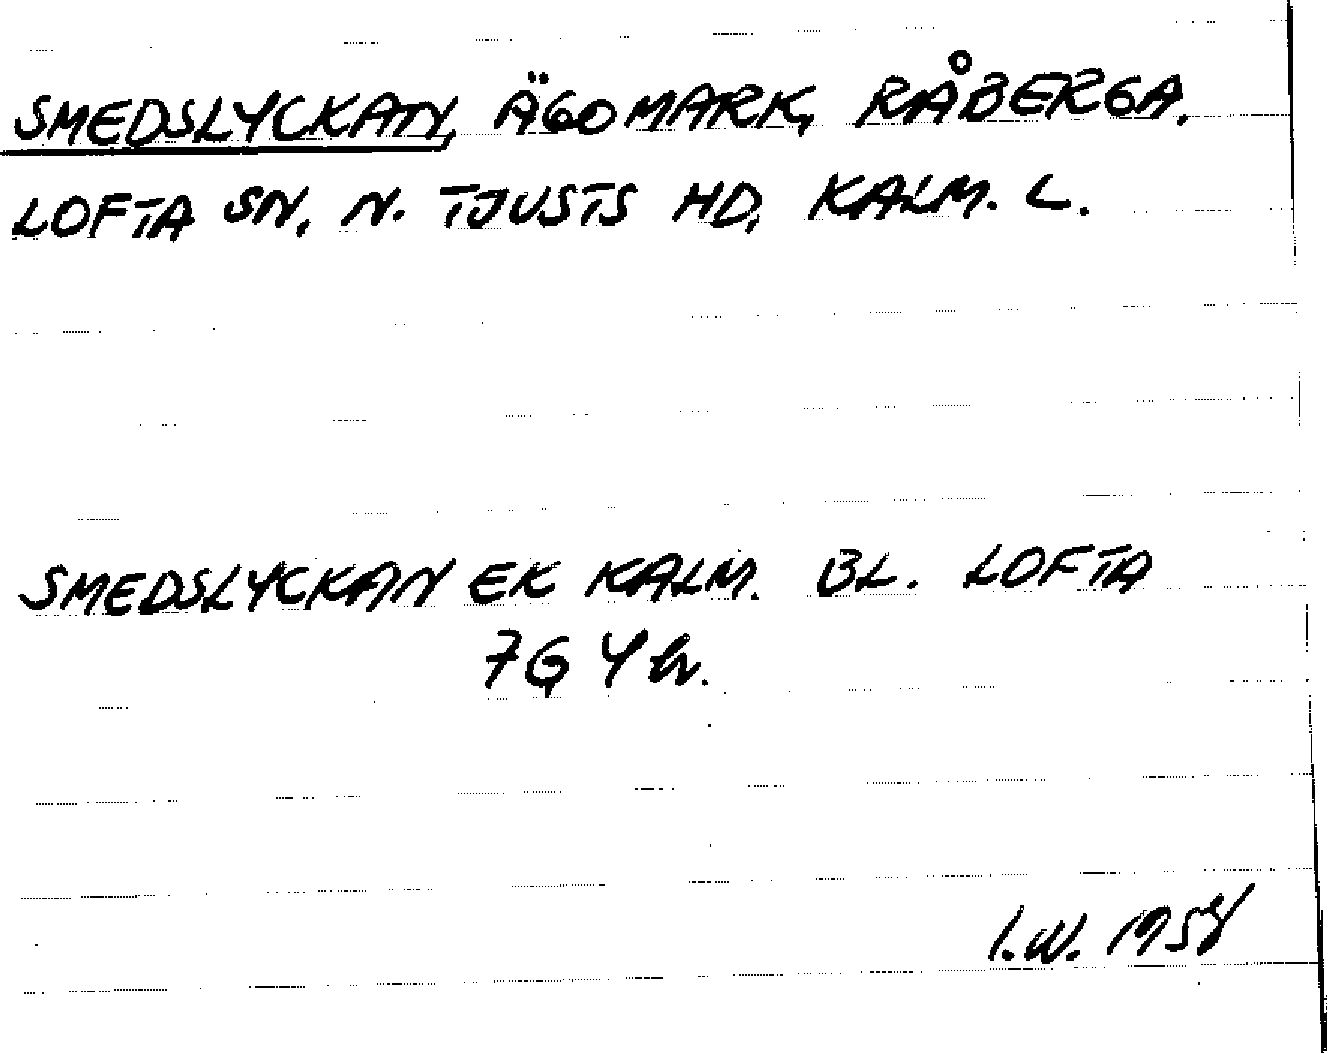 SMEDSLYCKAN, ÄGOMARK, RÅBERGA,
LOFTA SN, N. TJUSTS HD, KALM. L.
SMEDSLYCKAN EK KALM. BL. LOFTA
7G
I.W. 1958